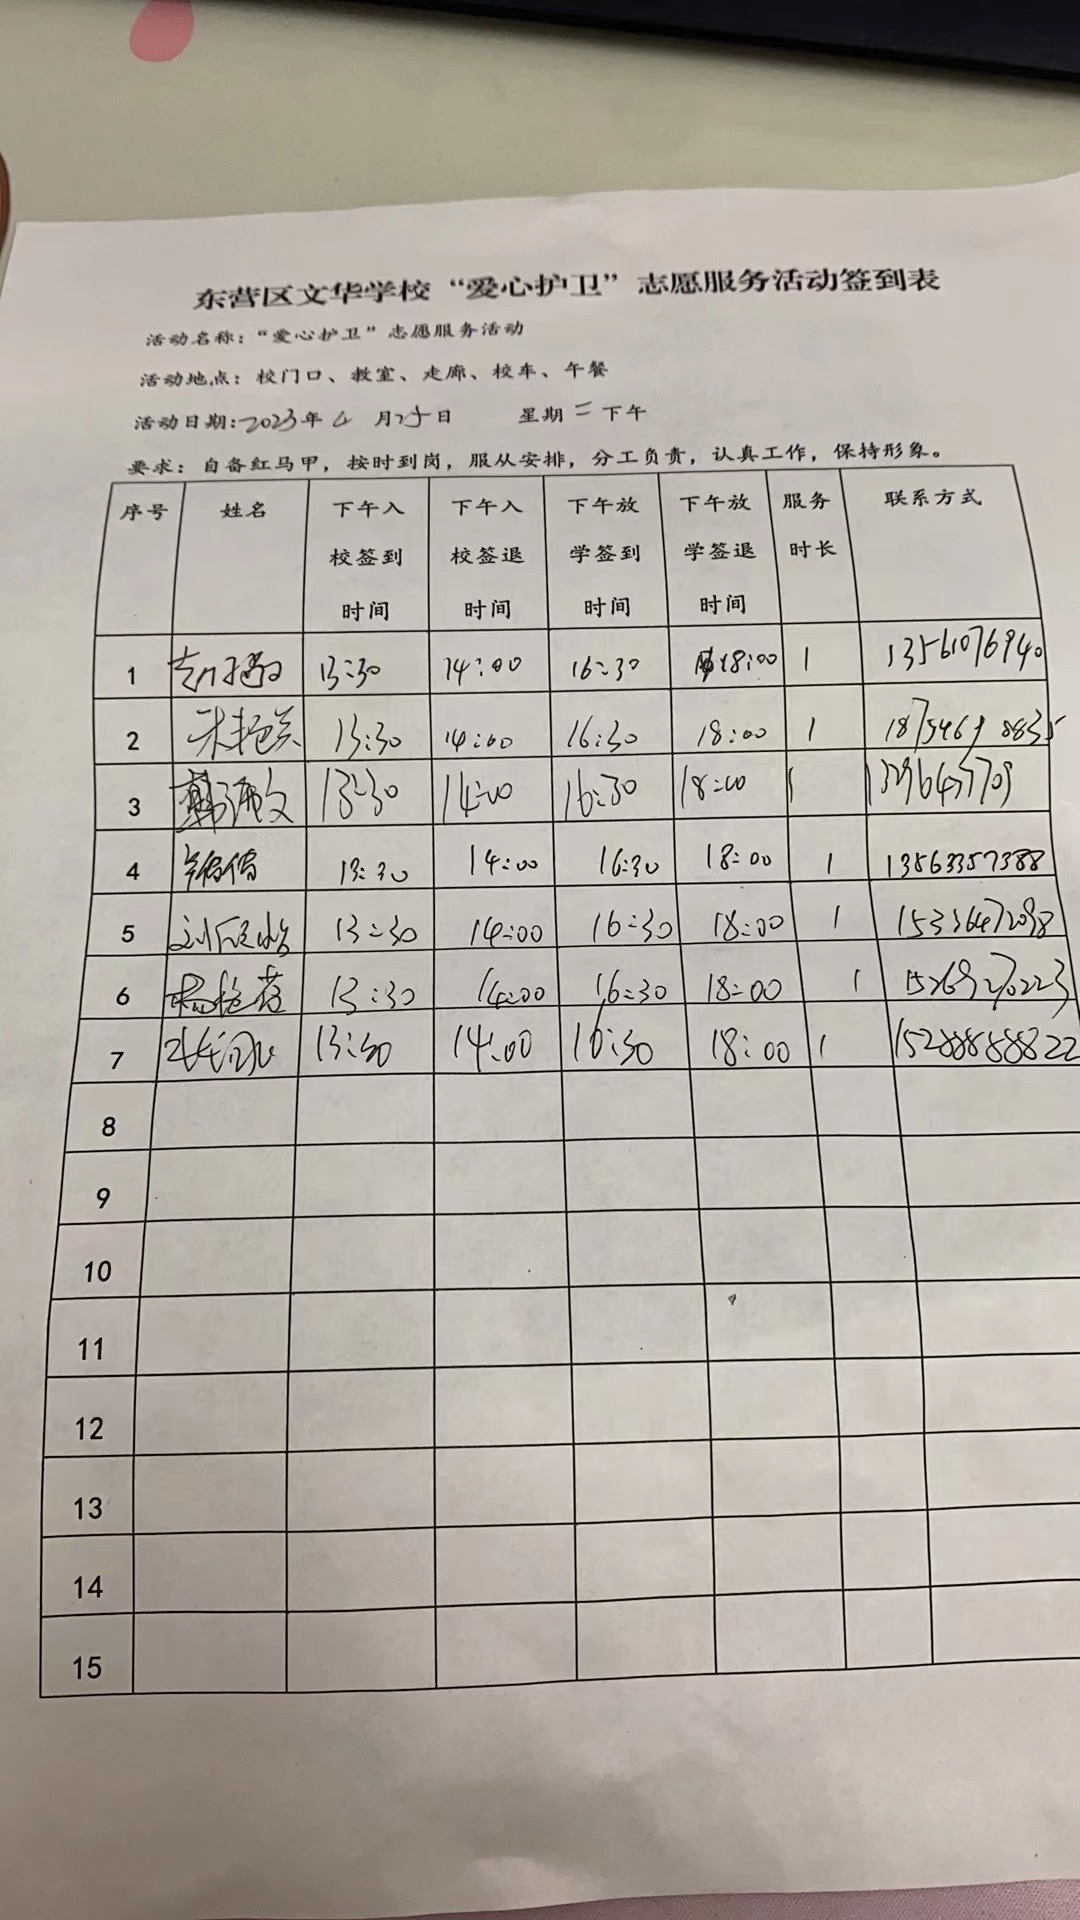 东营区文华学校“爱心护卫”志愿服务活动签到表
活动名称：“爱心护卫”志愿服务活动
活动地点：校门口、教室、走廊、校车、午餐
活动日期:2023年4月25日 星期二下午
要求：自备红马甲，按时到岗，服从安排，分工负责，认真工作，保持形象。
序号 姓名 下午入校签到时间 下午入校签退时间 下午放学签到时间 下午放学签退时间 服务时长 联系方式
1 13:30 14:00 16:30 18:00 1 13561076940
2 13:30 14:00 16:30 18:00 1
3 13:30 14:00 16:30 18:00 1
4 13:30 14:00 16:30 18:00 1 13563357388
5 13:30 14:00 16:30 18:00 1 15336472098
6 13:30 14:00 16:30 18:00 1 15269270223
7 13:30 14:00 16:30 18:00 1 15288888822
8
9
10
11
12
13
14
15